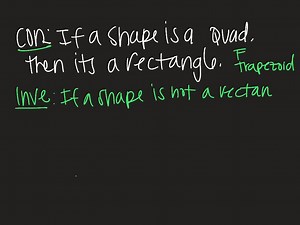 Con: If a shape is a Quad.
then its a rectangle. F
Trapezoid
Inve: If a shape is not a rectan